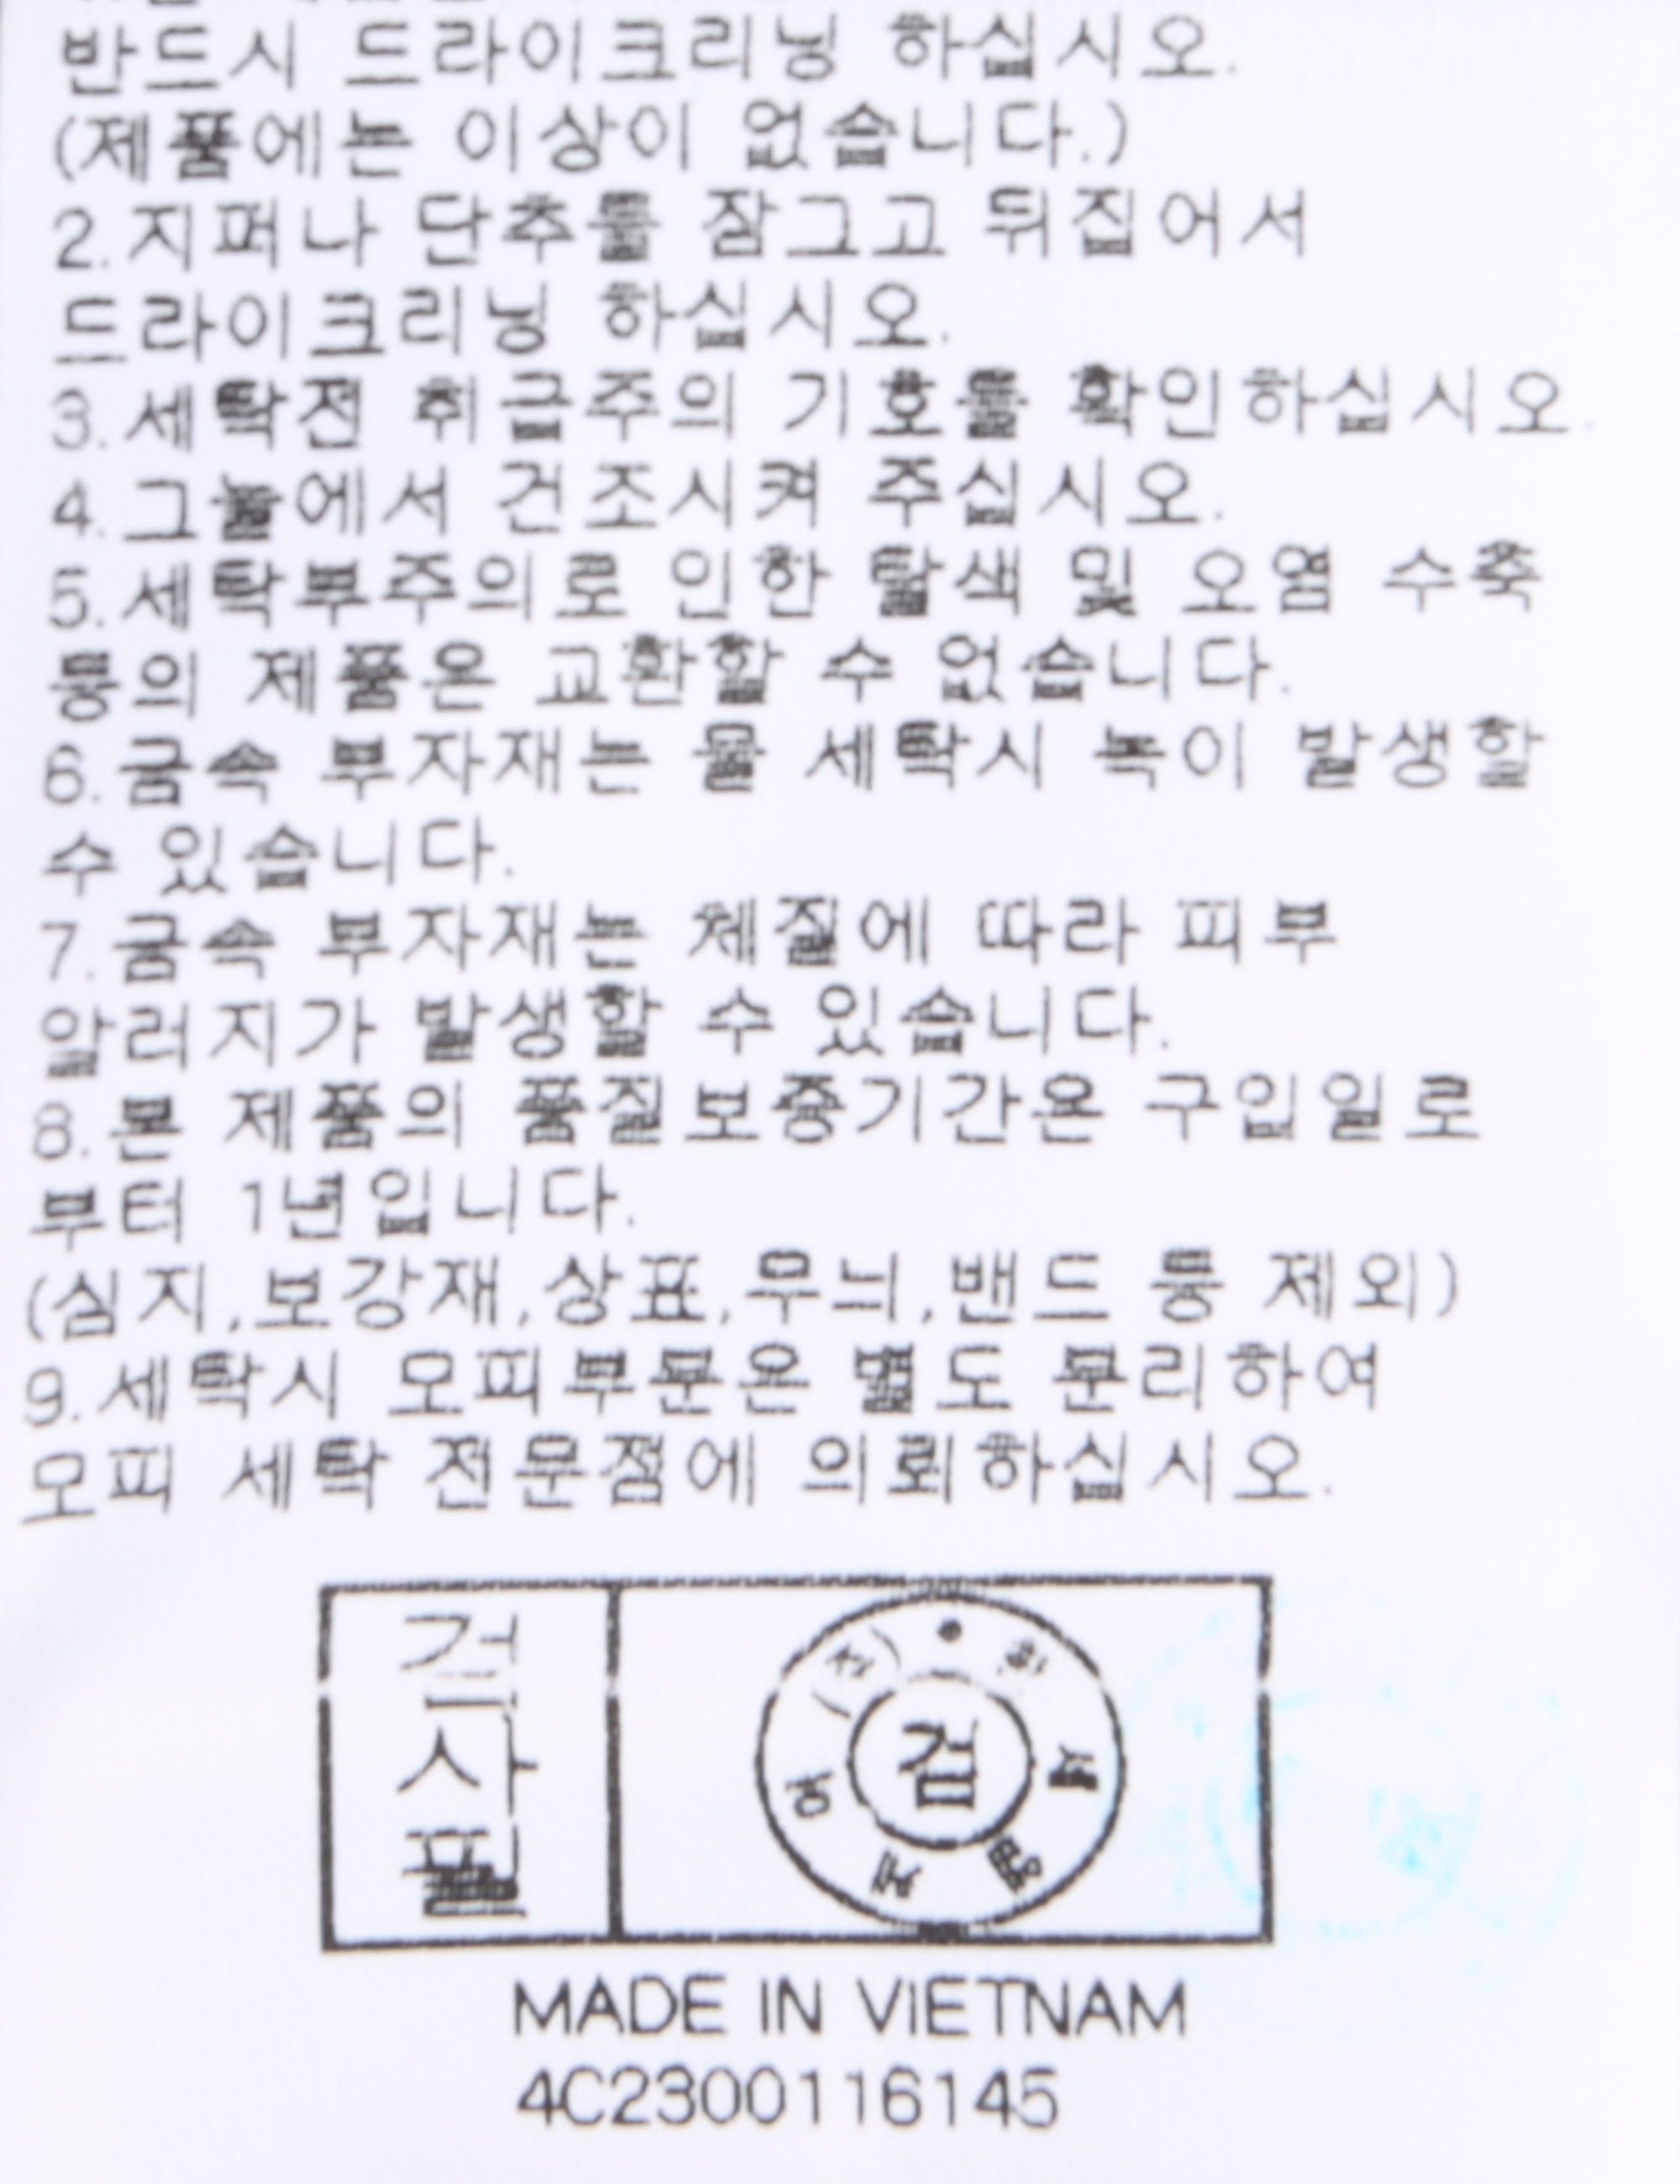 반드시 드라이크리닝 하십시오.
(제품에는 이상이 없습니다.)
2.지퍼나 단추를 잠그고 뒤집어서
드라이크리닝 하십시오.
3.세탁전 취급주의 기호를 확인하십시오.
4.그늘에서 건조시켜 주십시오.
5.세탁부주의로 인한 탈색 및 오염 수축
등의 제품은 교환할 수 없습니다.
6.금속 부자재는 물 세탁시 녹이 발생할
수 있습니다.
7.금속 부자재는 체질에 따라 피부
알러지가 발생할 수 있습니다.
8.본 제품의 품질보증기간은 구입일로
부터 1년입니다.
(심지,보강재,상표,무늬,밴드 등 제외)
9.세탁시 모피부분은 별도 분리하여
모피 세탁 전문점에 의뢰하십시오.
검사필
검
MADE IN VIETNAM
4C2300116145